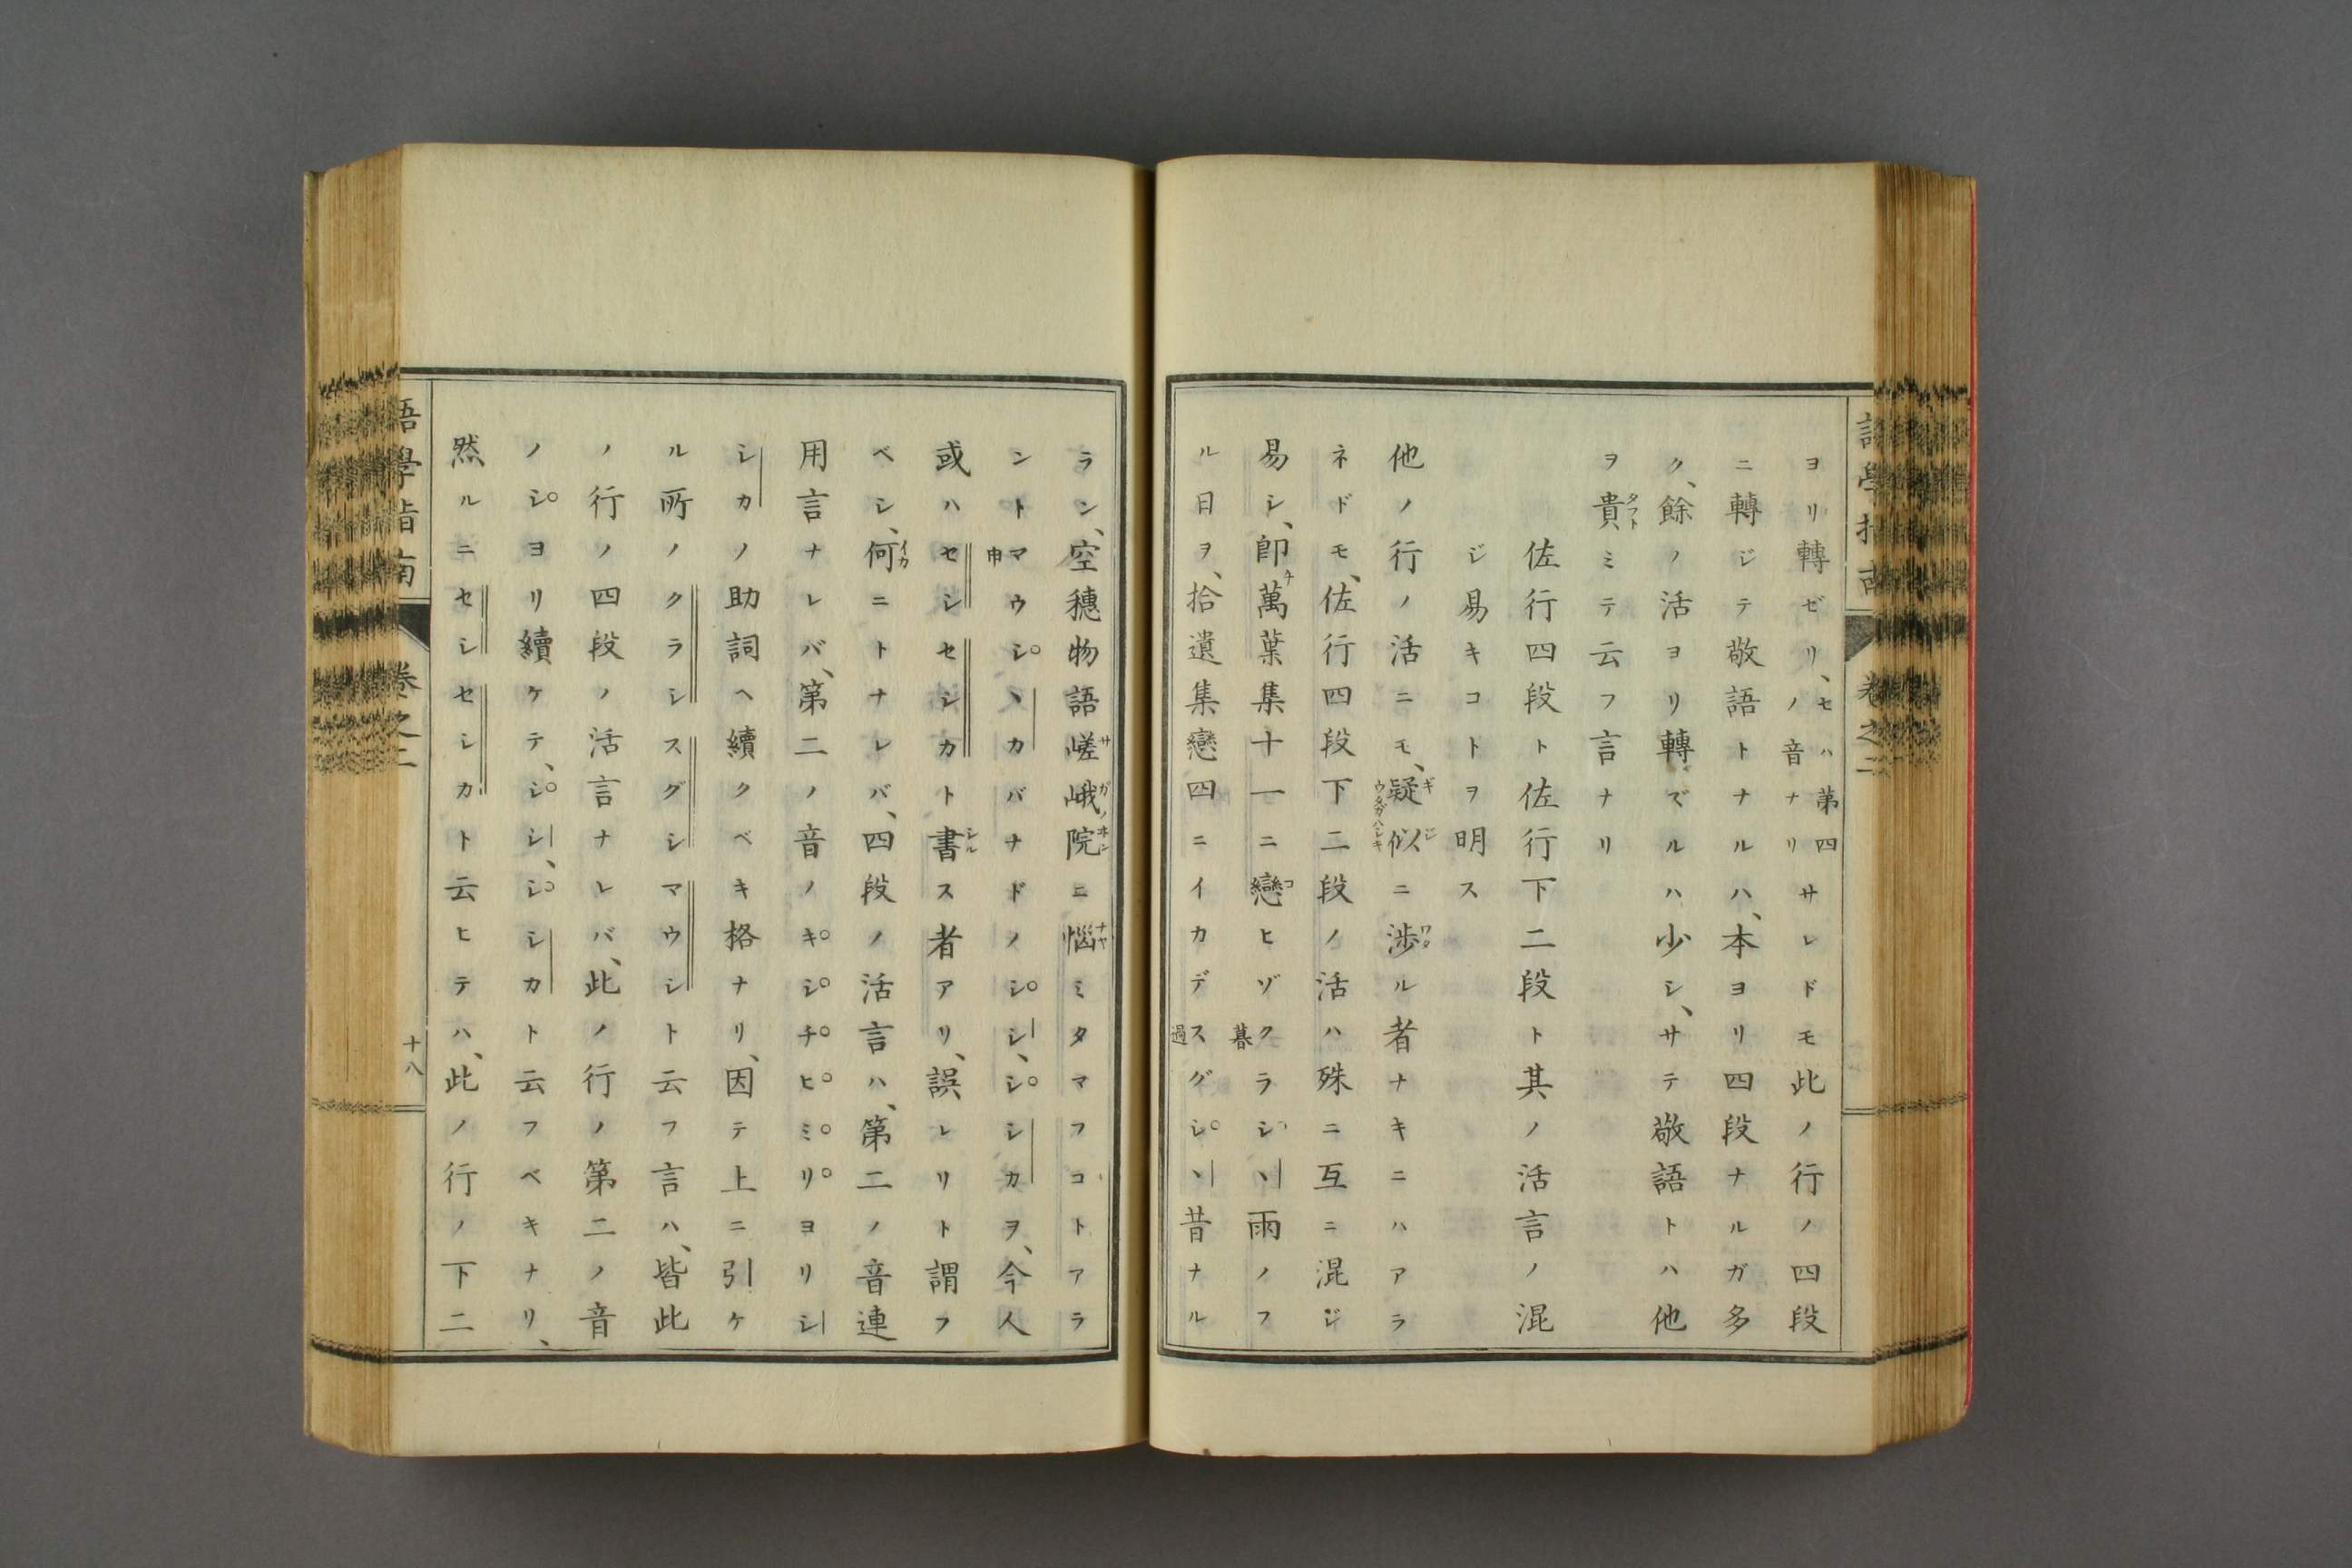 ヨリ轉ゼリ、セハ第四ノ音ナリサレドモ此ノ行ノ四段
ニ轉ジテ敬語トナルハ、本ヨリ四段ナルガ多
ク、餘ノ活ヨリ轉ズルハ少シ、サテ敬語トハ他
ヲ貴タフトミテ云フ言ナリ
佐行四段ト佐行下二段ト其ノ活言ノ混
ジ易キコトヲ明ス
他ノ行ノ活ニモ、疑ギ似ジウタガハシキニ渉ワタル者ナキニハアラ
ネドモ、佐行四段下二段ノ活ハ殊ニ互ニ混ジ
易シ、卽チ萬葉集十一ニ戀コヒゾクラ暮シヽ雨ノフ
ル日ヲ、拾遺集戀四ニイカデスグ過シヽ昔ナル
ラン、空穗物語嵯サ峨ガノ院ヰンニ惱ナヤミタマフコトアラ
ントマウ申シヽカバナドノシシ、シシカヲ、今人
或ハセシセシカト書シルス者アリ、誤レリト謂フ
ベシ、何イカニトナレバ、四段ノ活言ハ、第二ノ音連
用言ナレバ、第二ノ音ノキシチヒミリヨリシ
シカノ助詞ヘ續クベキ格ナリ、因テ上ニ引ケ
ル所ノクラシスグシマウシト云フ言ハ、皆此
ノ行ノ四段ノ活言ナレバ、此ノ行ノ第二ノ音
ノシヨリ續ケテ、シシ、シシカト云フベキナリ、
然ルニセシセシカト云ヒテハ、此ノ行ノ下二
語學指南
卷之二
十八